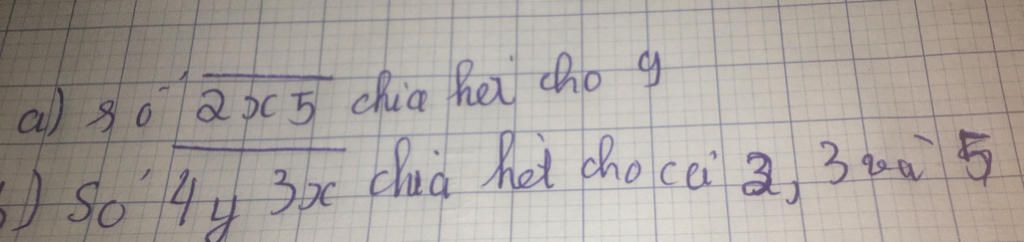 a) số 2x5 chia hết cho 9
b) Số 4y3x chia hết cho cả 2, 3 và 5